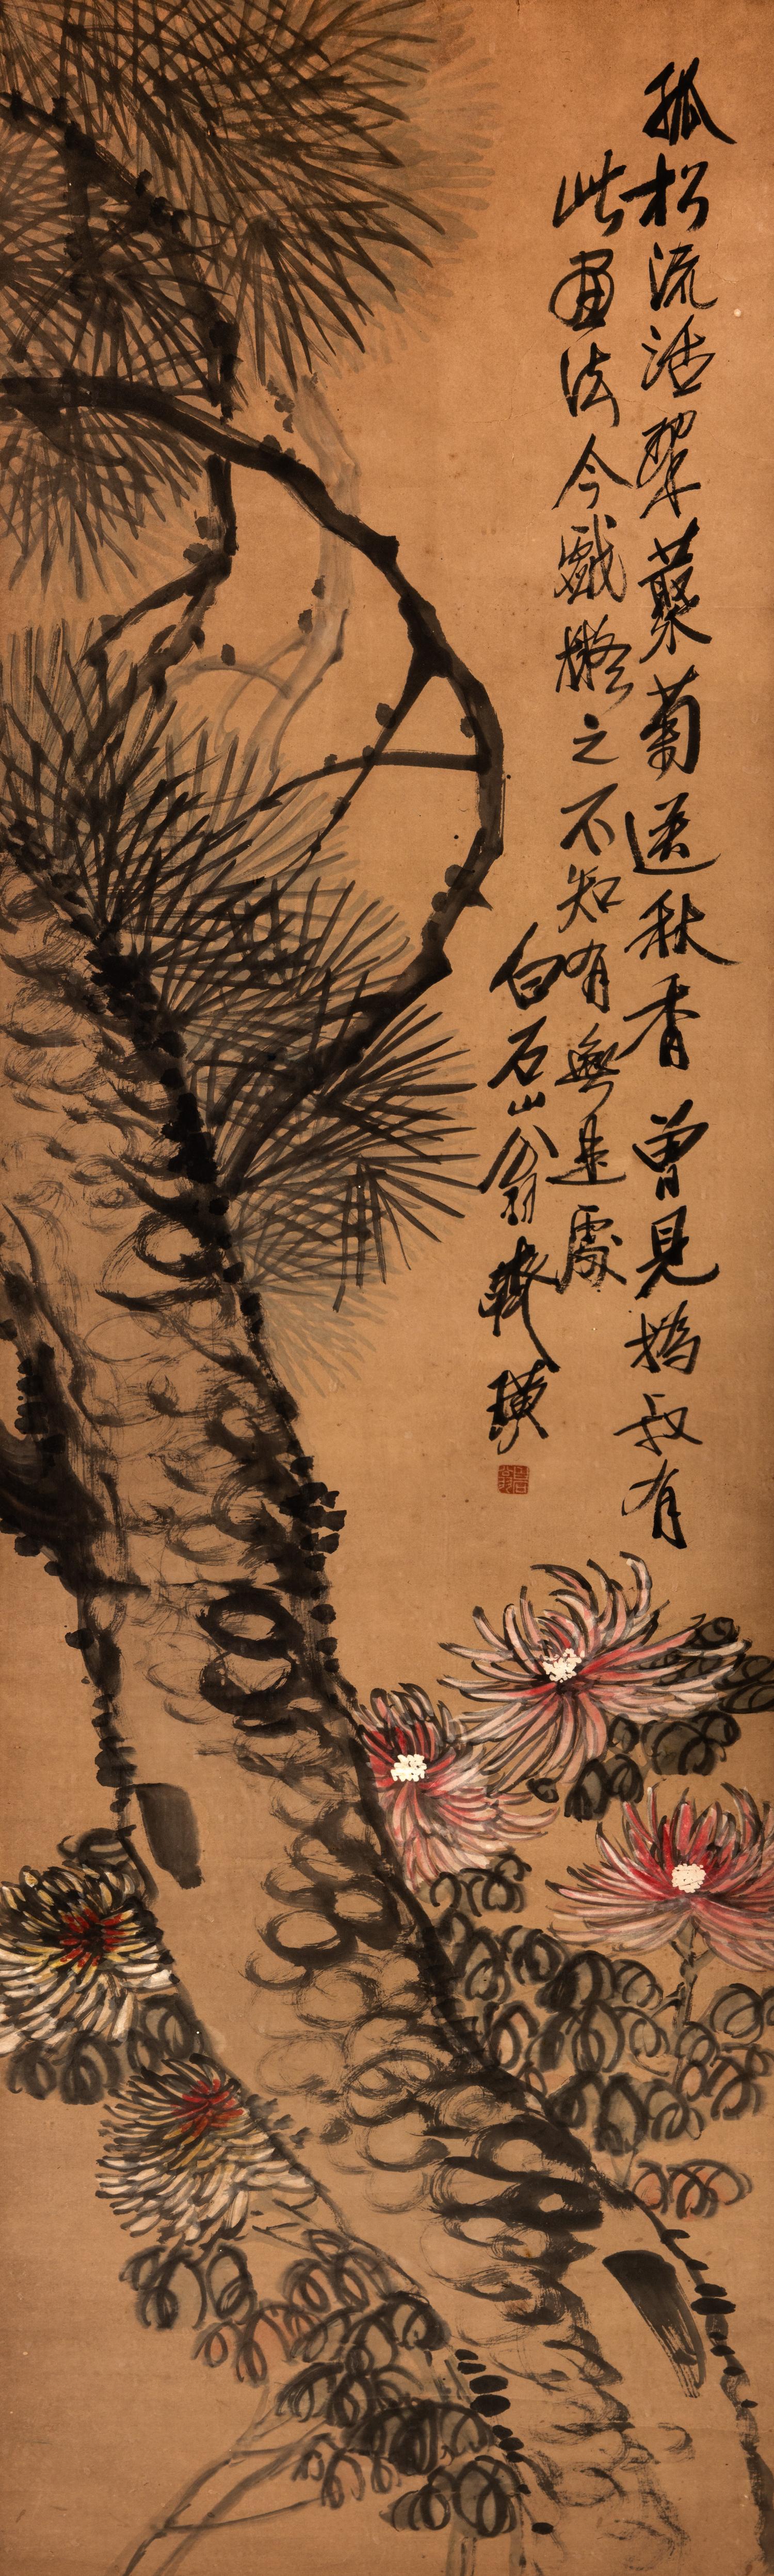 孤松流活翠叢菊送秋香曾見撝叔有
此画法今戲擬之不知有無是處
白石山翁齊璜
白石翁